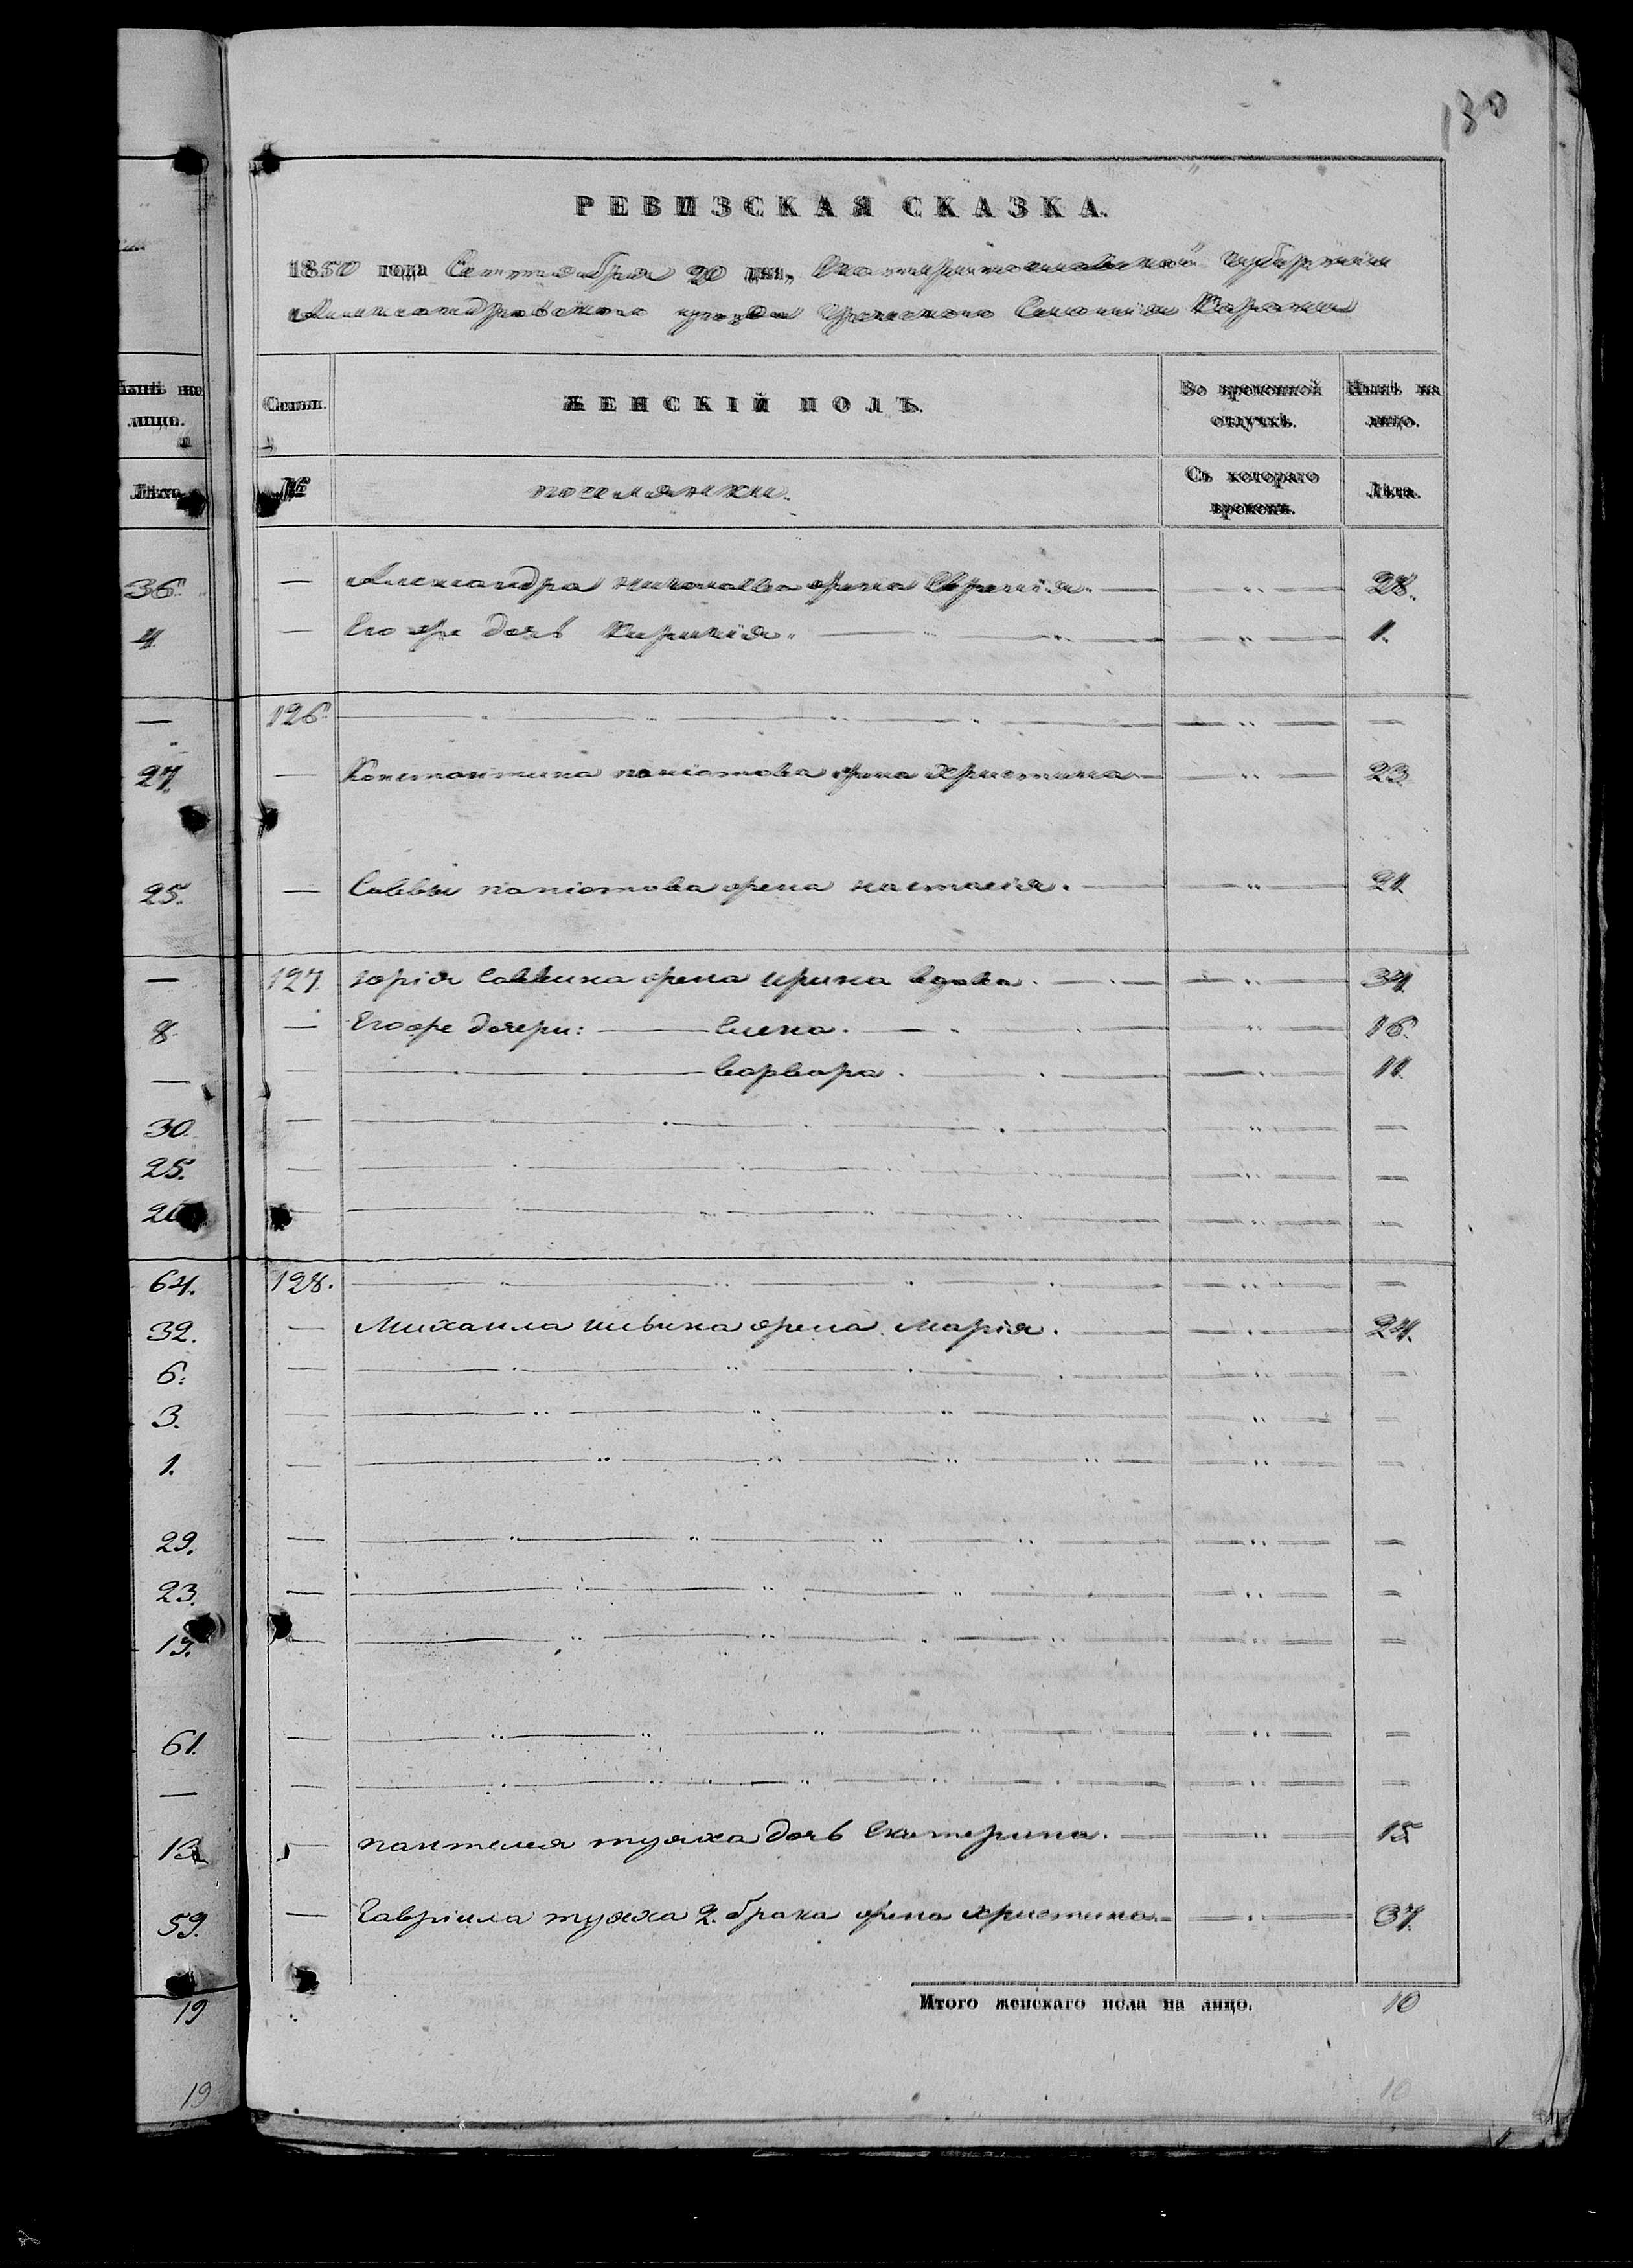 130
РЕВИЗСКАЯ СКАЗКА.
1850 года Сентября 20 дня, Екатеринославской губерніи
Александровского уезда Греческого Селенія Карань
Семьи. ЖЕНСКІЙ ПОЛЪ. Во временной отлучкѣ. Нынѣ на лицо.
№ поселянки. Съ котораго времени. Лѣта.
лицо.
Лѣта.
36. — Александра николаева жена Евгенія. — " — 28.
4. — Его же дочь Кирикія " — " — 1.
— 126. — " — —
27. — Константина папіотова жена Христина — " — 23.
25. — Саввы папіотова жена настасія. — " — 21.
— 127. юрія Саввина жена ирина вдова. — " — 34.
8. — Его же дочери: — Елена. — " — 16.
— — Варвара. — " — 11.
30. — " — —
25. — " — —
— " — —
64. 128. — " — —
32. — Михаила ильина жена Марія. — " — 24.
6. — " — —
3. — " — —
1. — " — —
29. — " — —
23. — " — —
— " — —
61. — " — —
— — " — —
13. — пантелея тужха дочь Екатерина. — " — 15.
59. — Гавріила тужха 2. брака жена христина — " — 37.
19 Итого женскаго пола на лицо. 10
19 10